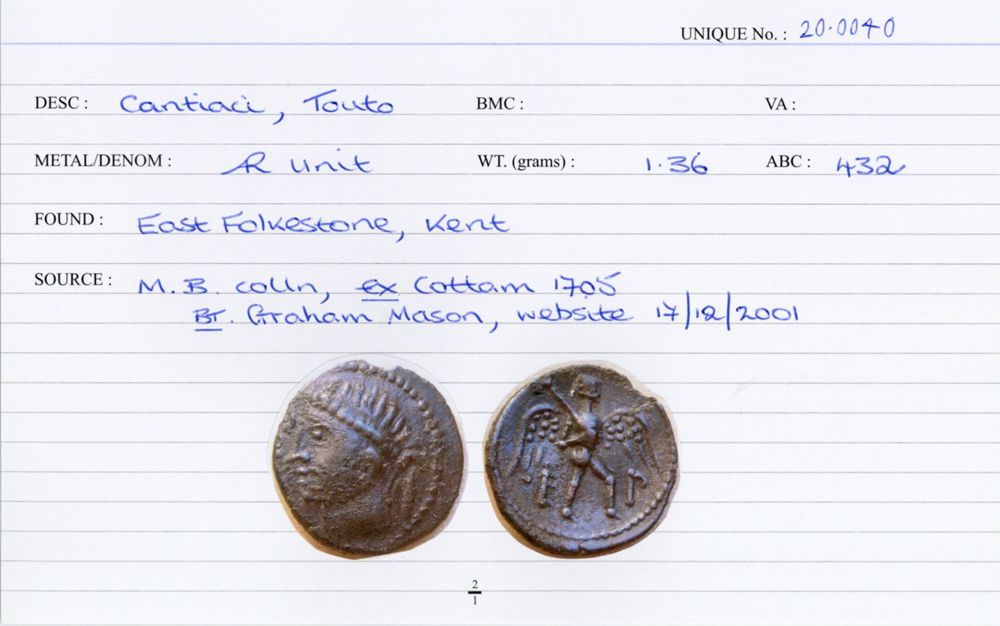 UNIQUE No. : 20.0040
DESC : Cantiaci, Touto BMC : VA :
METAL/DENOM : AR unit WT. (grams) : 1.36 ABC : 432
FOUND : East Folkestone, Kent
SOURCE : M.B. colln, ex Cottam 1705
BT. Graham Mason, website 17/12/2001
2
1